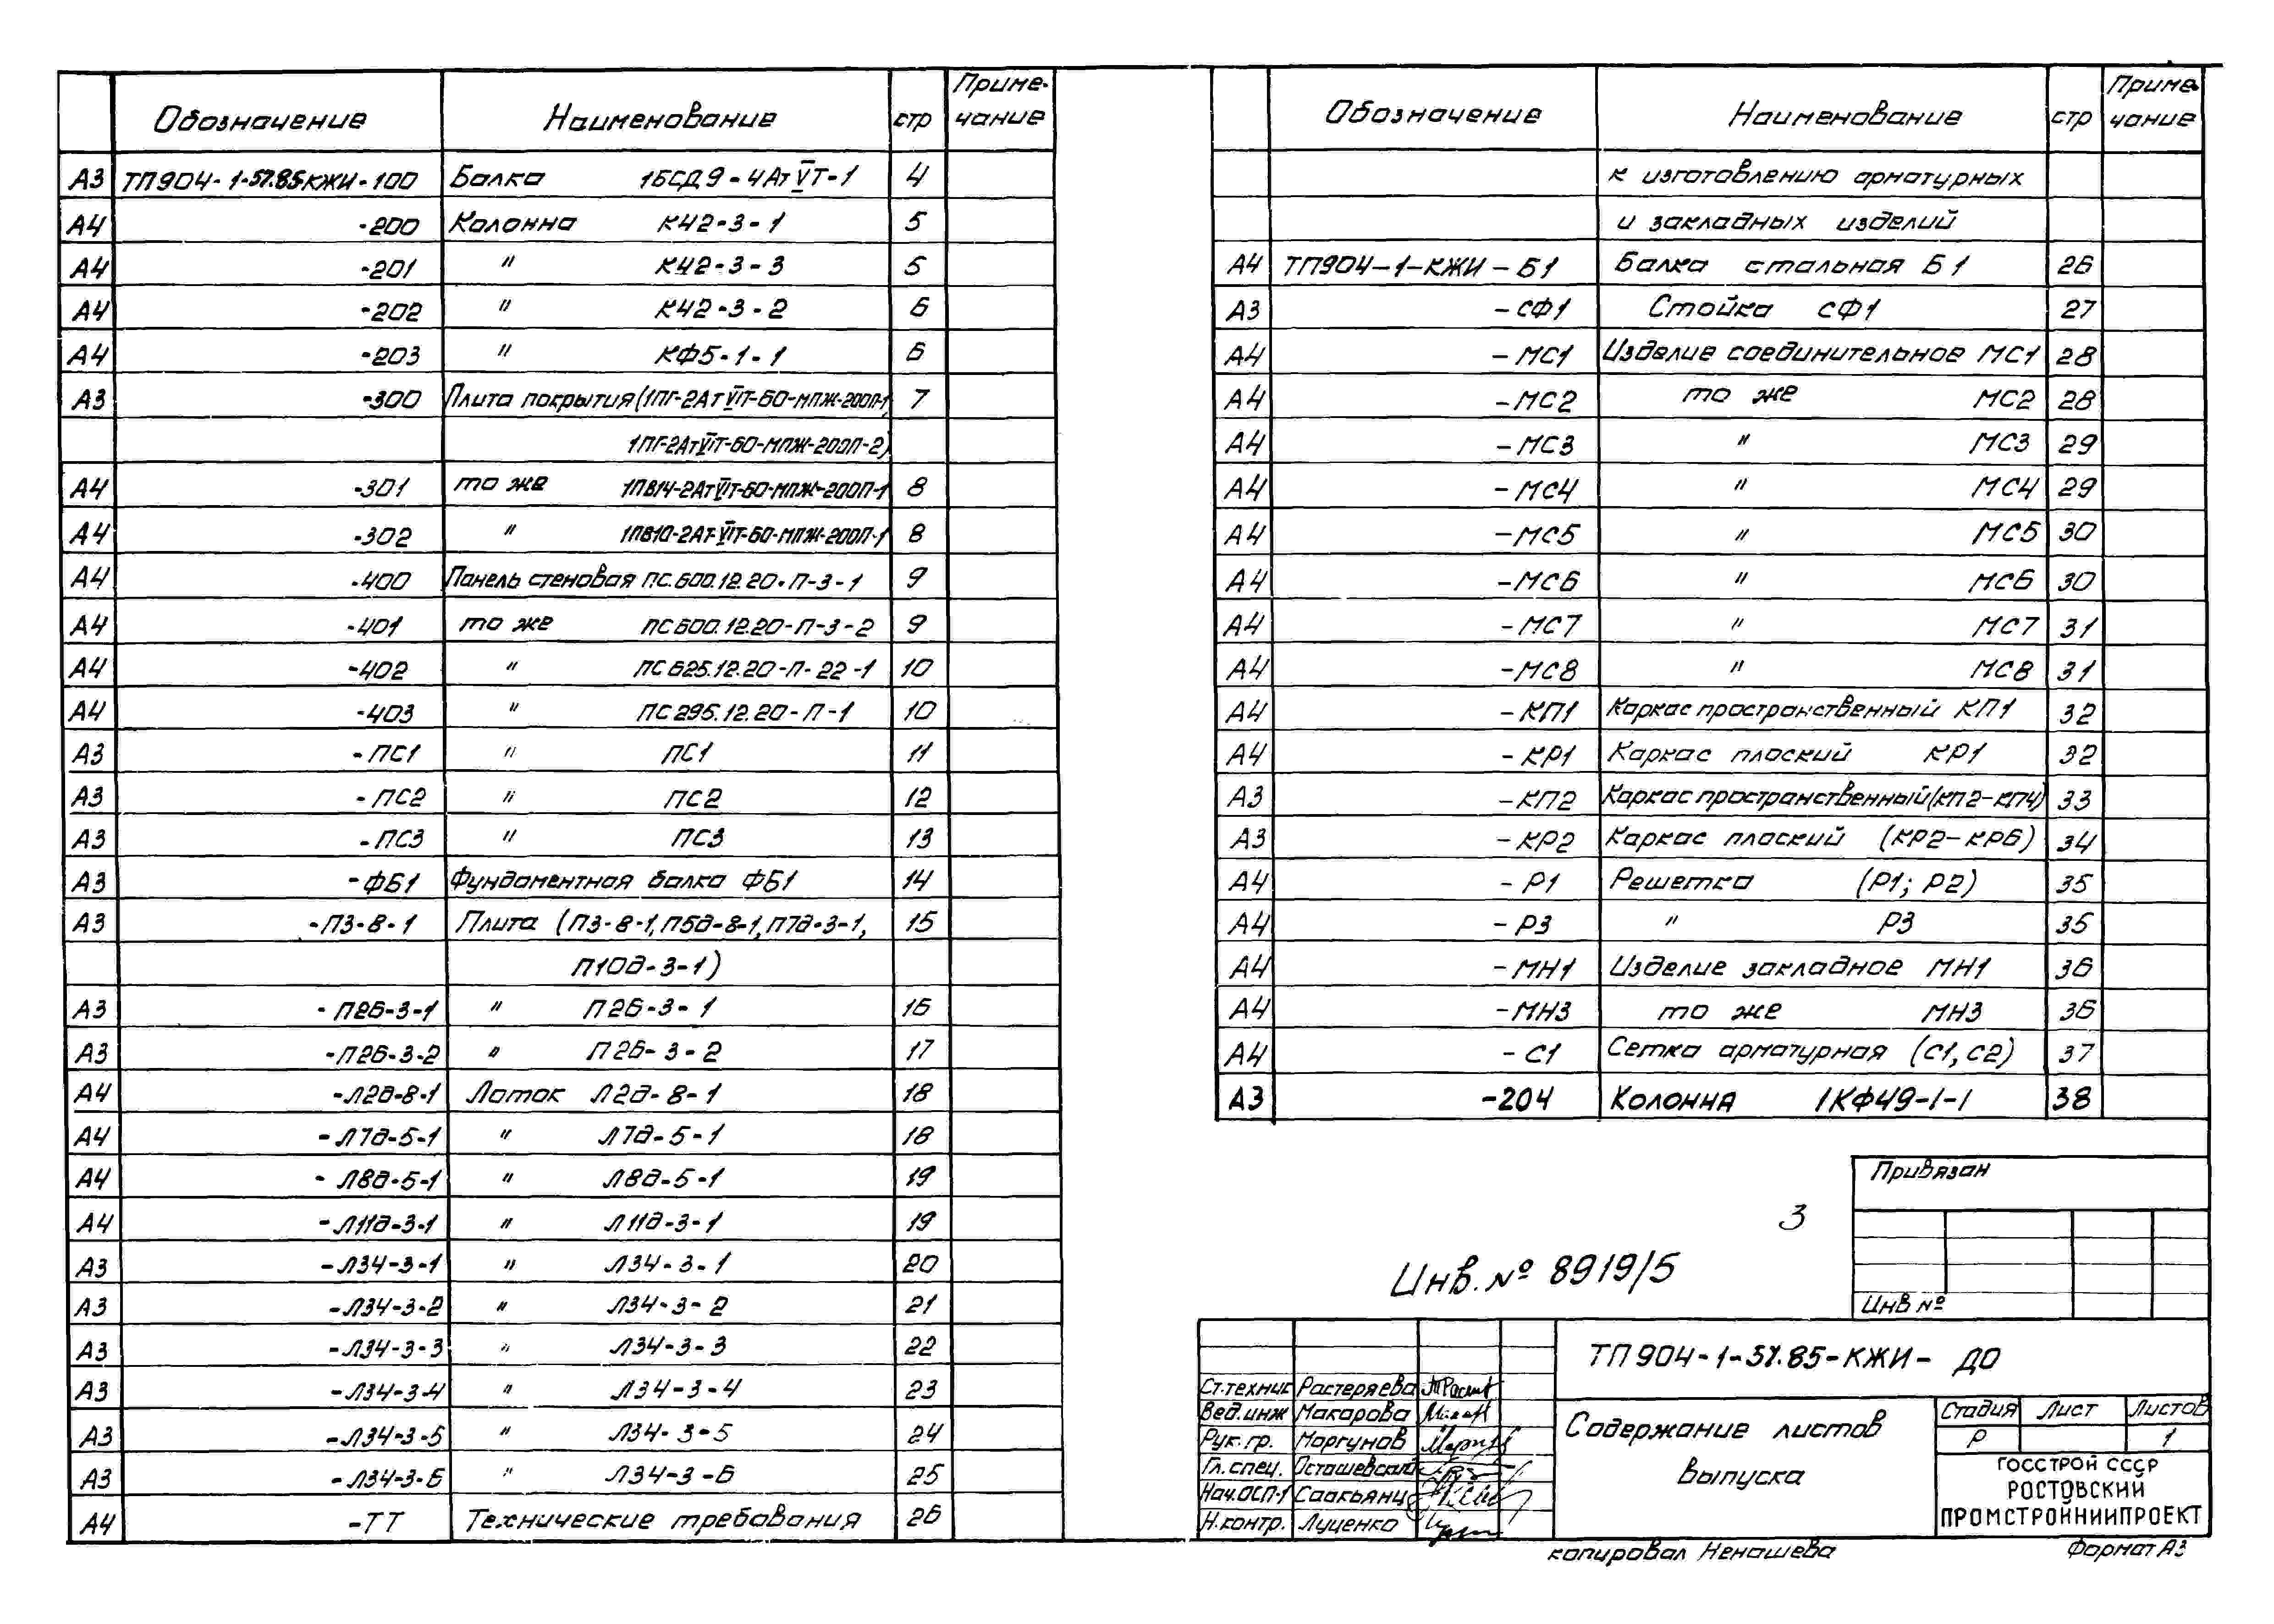 Обозначение Наименование стр Приме-
чание
А3 ТП904-1-57.85КЖИ-100 Балка 1БСД9-4АтⅤТ-1 4
А4 -200 Колонна К42-3-1 5
А4 -201 " К42-3-3 5
А4 -202 " К42-3-2 6
А4 -203 " КФ5-1-1 6
А3 -300 Плита покрытия (1ПГ-2АтⅥТ-60-МПЖ-200П-1, 7
1ПГ-2АтⅥТ-60-МПЖ-200П-2)
А4 -301 то же 1ПВ14-2АтⅥТ-60-МПЖ-200П-1 8
А4 -302 " 1ПВ10-2АтⅥТ-60-МПЖ-200П-1 8
А4 -400 Панель стеновая ПС.600.12.20-П-3-1 9
А4 -401 то же ПС600.12.20-П-3-2 9
А4 -402 " ПС625.12.20-П-22-1 10
А4 -403 " ПС295.12.20-П-1 10
А3 -ПС1 " ПС1 11
А3 -ПС2 " ПС2 12
А3 -ПС3 " ПС3 13
А3 -ФБ1 Фундаментная балка ФБ1 14
А3 -П3-8-1 Плита (П3-8-1, П5д-8-1, П7д-3-1, 15
П10д-3-1)
А3 -П26-3-1 " П26-3-1 16
А3 -П26-3-2 " П26-3-2 17
А4 -Л2д-8-1 Лоток Л2д-8-1 18
А4 -Л7д-5-1 " Л7д-5-1 18
А4 -Л8д-5-1 " Л8д-5-1 19
А4 -Л11д-3-1 " Л11д-3-1 19
А3 -Л34-3-1 " Л34-3-1 20
А3 -Л34-3-2 " Л34-3-2 21
А3 -Л34-3-3 " Л34-3-3 22
А3 -Л34-3-4 " Л34-3-4 23
А3 -Л34-3-5 " Л34-3-5 24
А3 -Л34-3-6 " Л34-3-6 25
А4 -ТТ Технические требования 26
Обозначение Наименование стр Приме-
чание
к изготовлению арматурных
и закладных изделий
А4 ТП904-1-КЖИ-Б1 Балка стальная Б1 26
А3 -СФ1 Стойка СФ1 27
А4 -МС1 Изделие соединительное МС1 28
А4 -МС2 то же МС2 28
А4 -МС3 " МС3 29
А4 -МС4 " МС4 29
А4 -МС5 " МС5 30
А4 -МС6 " МС6 30
А4 -МС7 " МС7 31
А4 -МС8 " МС8 31
А4 -КП1 Каркас пространственный КП1 32
А4 -КР1 Каркас плоский КР1 32
А3 -КП2 Каркас пространственный (КП2-КП4) 33
А3 -КР2 Каркас плоский (КР2-КР6) 34
А4 -Р1 Решетка (Р1; Р2) 35
А4 -Р3 " Р3 35
А4 -МН1 Изделие закладное МН1 36
А4 -МН3 то же МН3 36
А4 -С1 Сетка арматурная (С1, С2) 37
А3 -204 Колонна 1КФ49-1-1 38
Привязан
Инв №
3
Инв. № 8919/5
ТП904-1-57.85-КЖИ- ДО
Ст.техник Растеряева
Вед.инж Макарова
Рук.гр. Моргунов
Гл.спец. Осташевский
Нач.ОСП-1 Саакьянц
Н.контр. Луценко
Содержание листов
выпуска
Стадия Лист Листов
Р 1
ГОССТРОЙ СССР
РОСТОВСКИЙ
ПРОМСТРОЙНИИПРОЕКТ
копировал Ненашева Формат А3